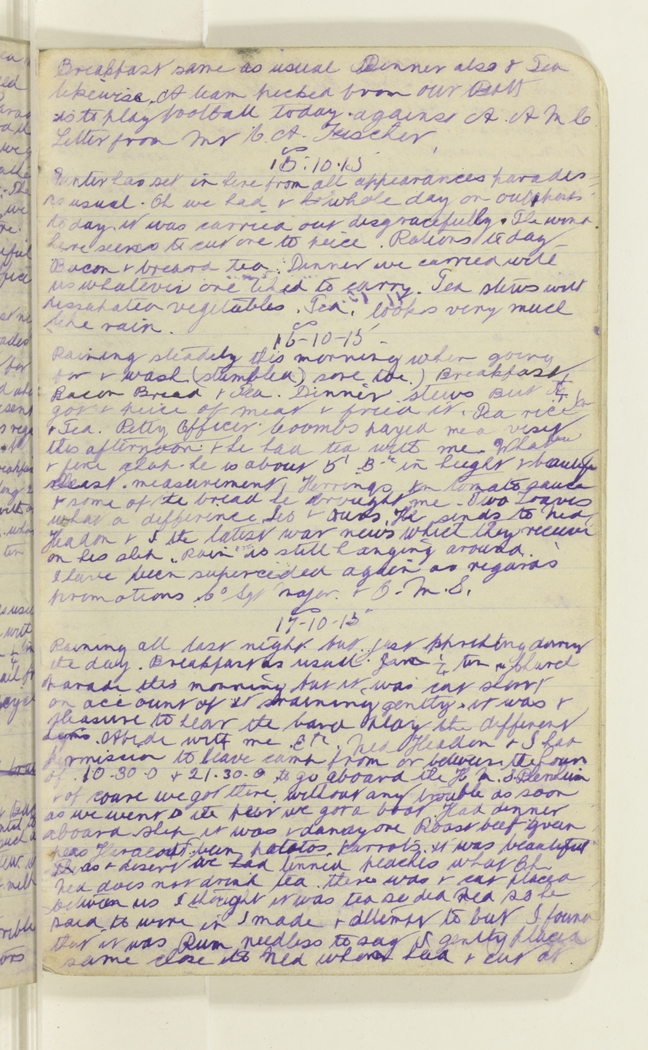 Breakfast same as usual Dinner also & Tea
likewise. A team picked from our Batt
to play football today against A. A M C
Letter from Mr H. A. Fischer
15.10.15
Winter has set in here from all appearances parades
as usual. Oh we had a whole day on outposts
today. it was carried out disgracefully. The wind
here seems to cut one to peice. Rations to day
Bacon & bread tea. Dinner we carried with
us whatever one liked to carry. Tea stews with
dessicated vegetables. Tea. looks very much
like rain.
16-10-15
Raining steadily this morning when going
for a wash (stumbled) sore toe.) Breakfast
Bacon Bread & Tea. Dinner stews But I
got a peice of meat & fried it. Tea rice
& Tea. Petty Officer Coombs payed me a visit
this afternoon & he had tea with me. What
a fine chap he is about 5' 8" in height &
chest measurement, Herrings in tomato sauce
& some of the bread he brought me. Two loaves
what a difference his & ours. He sends to Ned
Headon & I the latest war news which they receive
on his ship. Rain is still hanging around.
I have been superceided again as regards
promotions Co Sgt Major. & Q. M. S.
17-10-15
Raining all last night but just during
the day. Breakfast as usual. Jam ¼ tin Church
parade this morning but it was cut short
on account of it raining gently. it was a
pleasure to hear the band play the different
hyms. Abide with me. Etc. Ned Headon & I got
permission to leave camp from or between the hours
of 10-30-0 & 21.30-0 to go aboard the H. M. S
& of course we got there without any trouble as soon
as we went to the peir we got a boat Had dinner
aboard ship it was a dandy one Roast beef green
peas potatos. & carrots. it was beautiful
& as a desert we had tinned peaches what Oh.
Ned does not drink tea. there was a cup placed
between us I thought it was tea so did Ned so he
said to wire in I made a attempt to but I found
that it was Rum needless to say I gently placed
same close to Ned when had a cup of